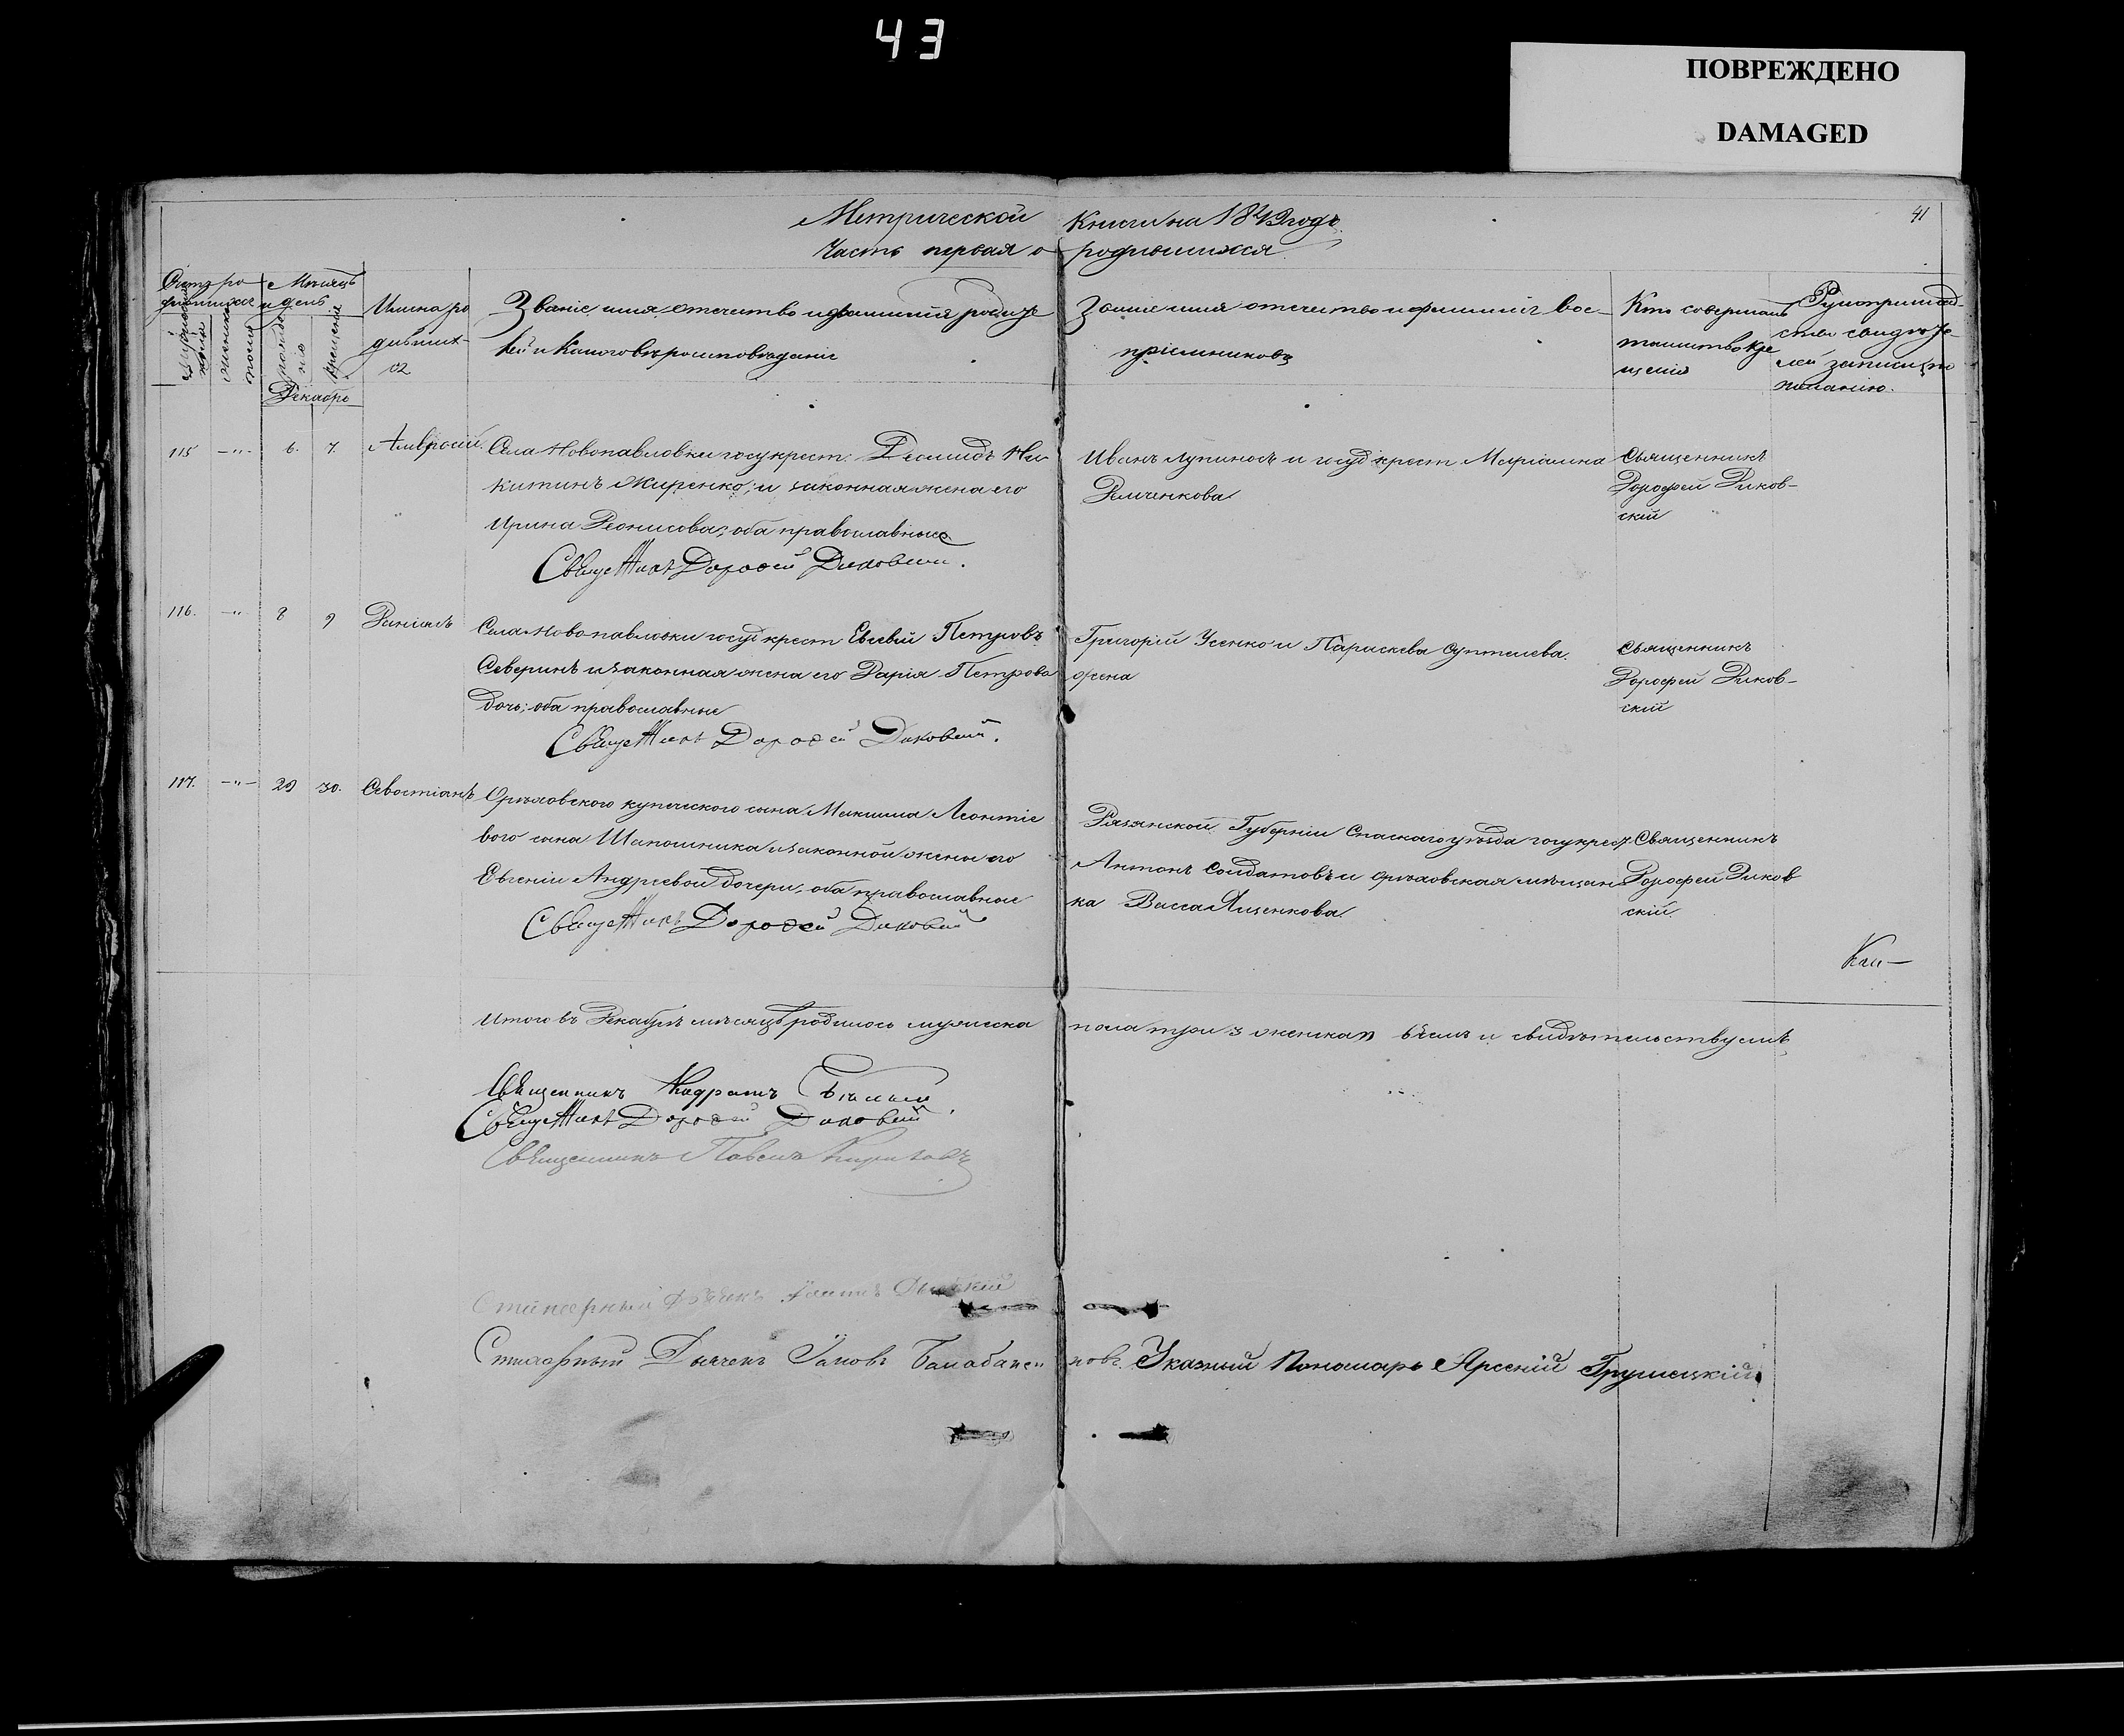 43
ПОВРЕЖДЕНО
DAMAGED
41
Метрической Книги на 1849 годъ
Часть первая о родившихся
Счетъ ро
дившихся
Мѣсяцъ
и день
мужеска
пола
женска
пола
рожде
нія
крещенія
Имена ро
дивших
ся
Званіе, имя, отечество и фамилія родите
лей и какого вѣроисповѣданія
Званіе имя отечество и фамилія вос-
пріемниковъ
Кто совершалъ
таинство кре
щенія
Рукоприклад-
ство свидѣте-
лей записи по
желанію.
Декабрь
115 -"- 6. 7. Амвросій.
Села Новопавловки госу крест. Демидъ Ни-
китинъ Жиренко; и законная жена его
Ирина Деонисова; оба православные
Священникъ Дорофей Диковскій.
Иванъ Лупиносъ и госуд крест Маріамна
Демченкова
Священникъ
Дорофей Диков-
скій
116. -"- 8 9 Даніилъ
Села Новопавловки госуд крест Евсевій Петровъ
Северинъ и законная жена его Дарія Петрова
дочь; оба православные
Священникъ Дорофей Диковскій.
Григорій Усенко и Параскева
жена
Священникъ
Дорофей Диков-
скій
117. -"- 29 30. Севостіанъ
Орѣховского купеческого сына Максима Леонтіе
вого сына Шапошника и законной жены его
Евгеніи Андреевой дочери, оба православные
Священникъ Дорофей Диковскій
Рязанской Губерніи Спаскаго уѣзда госу крест.
Антонъ Солдатовъ и орѣховская мѣщан
ка Васса Яценкова
Священникъ
Дорофей Диков
скій
Итого въ Декабрѣ мѣсяцѣ родилось мужеска пола три 3 женска въ чемъ и свидѣтельствуемъ
Священникъ Кодратъ
Священникъ Дорофей Диковскій
Священникъ Павелъ
Стихарный Дьячекъ
Стихарный Дьячекъ Іаковъ Балабанен ковъ. Указный Пономарь Арсеній Грушецкій